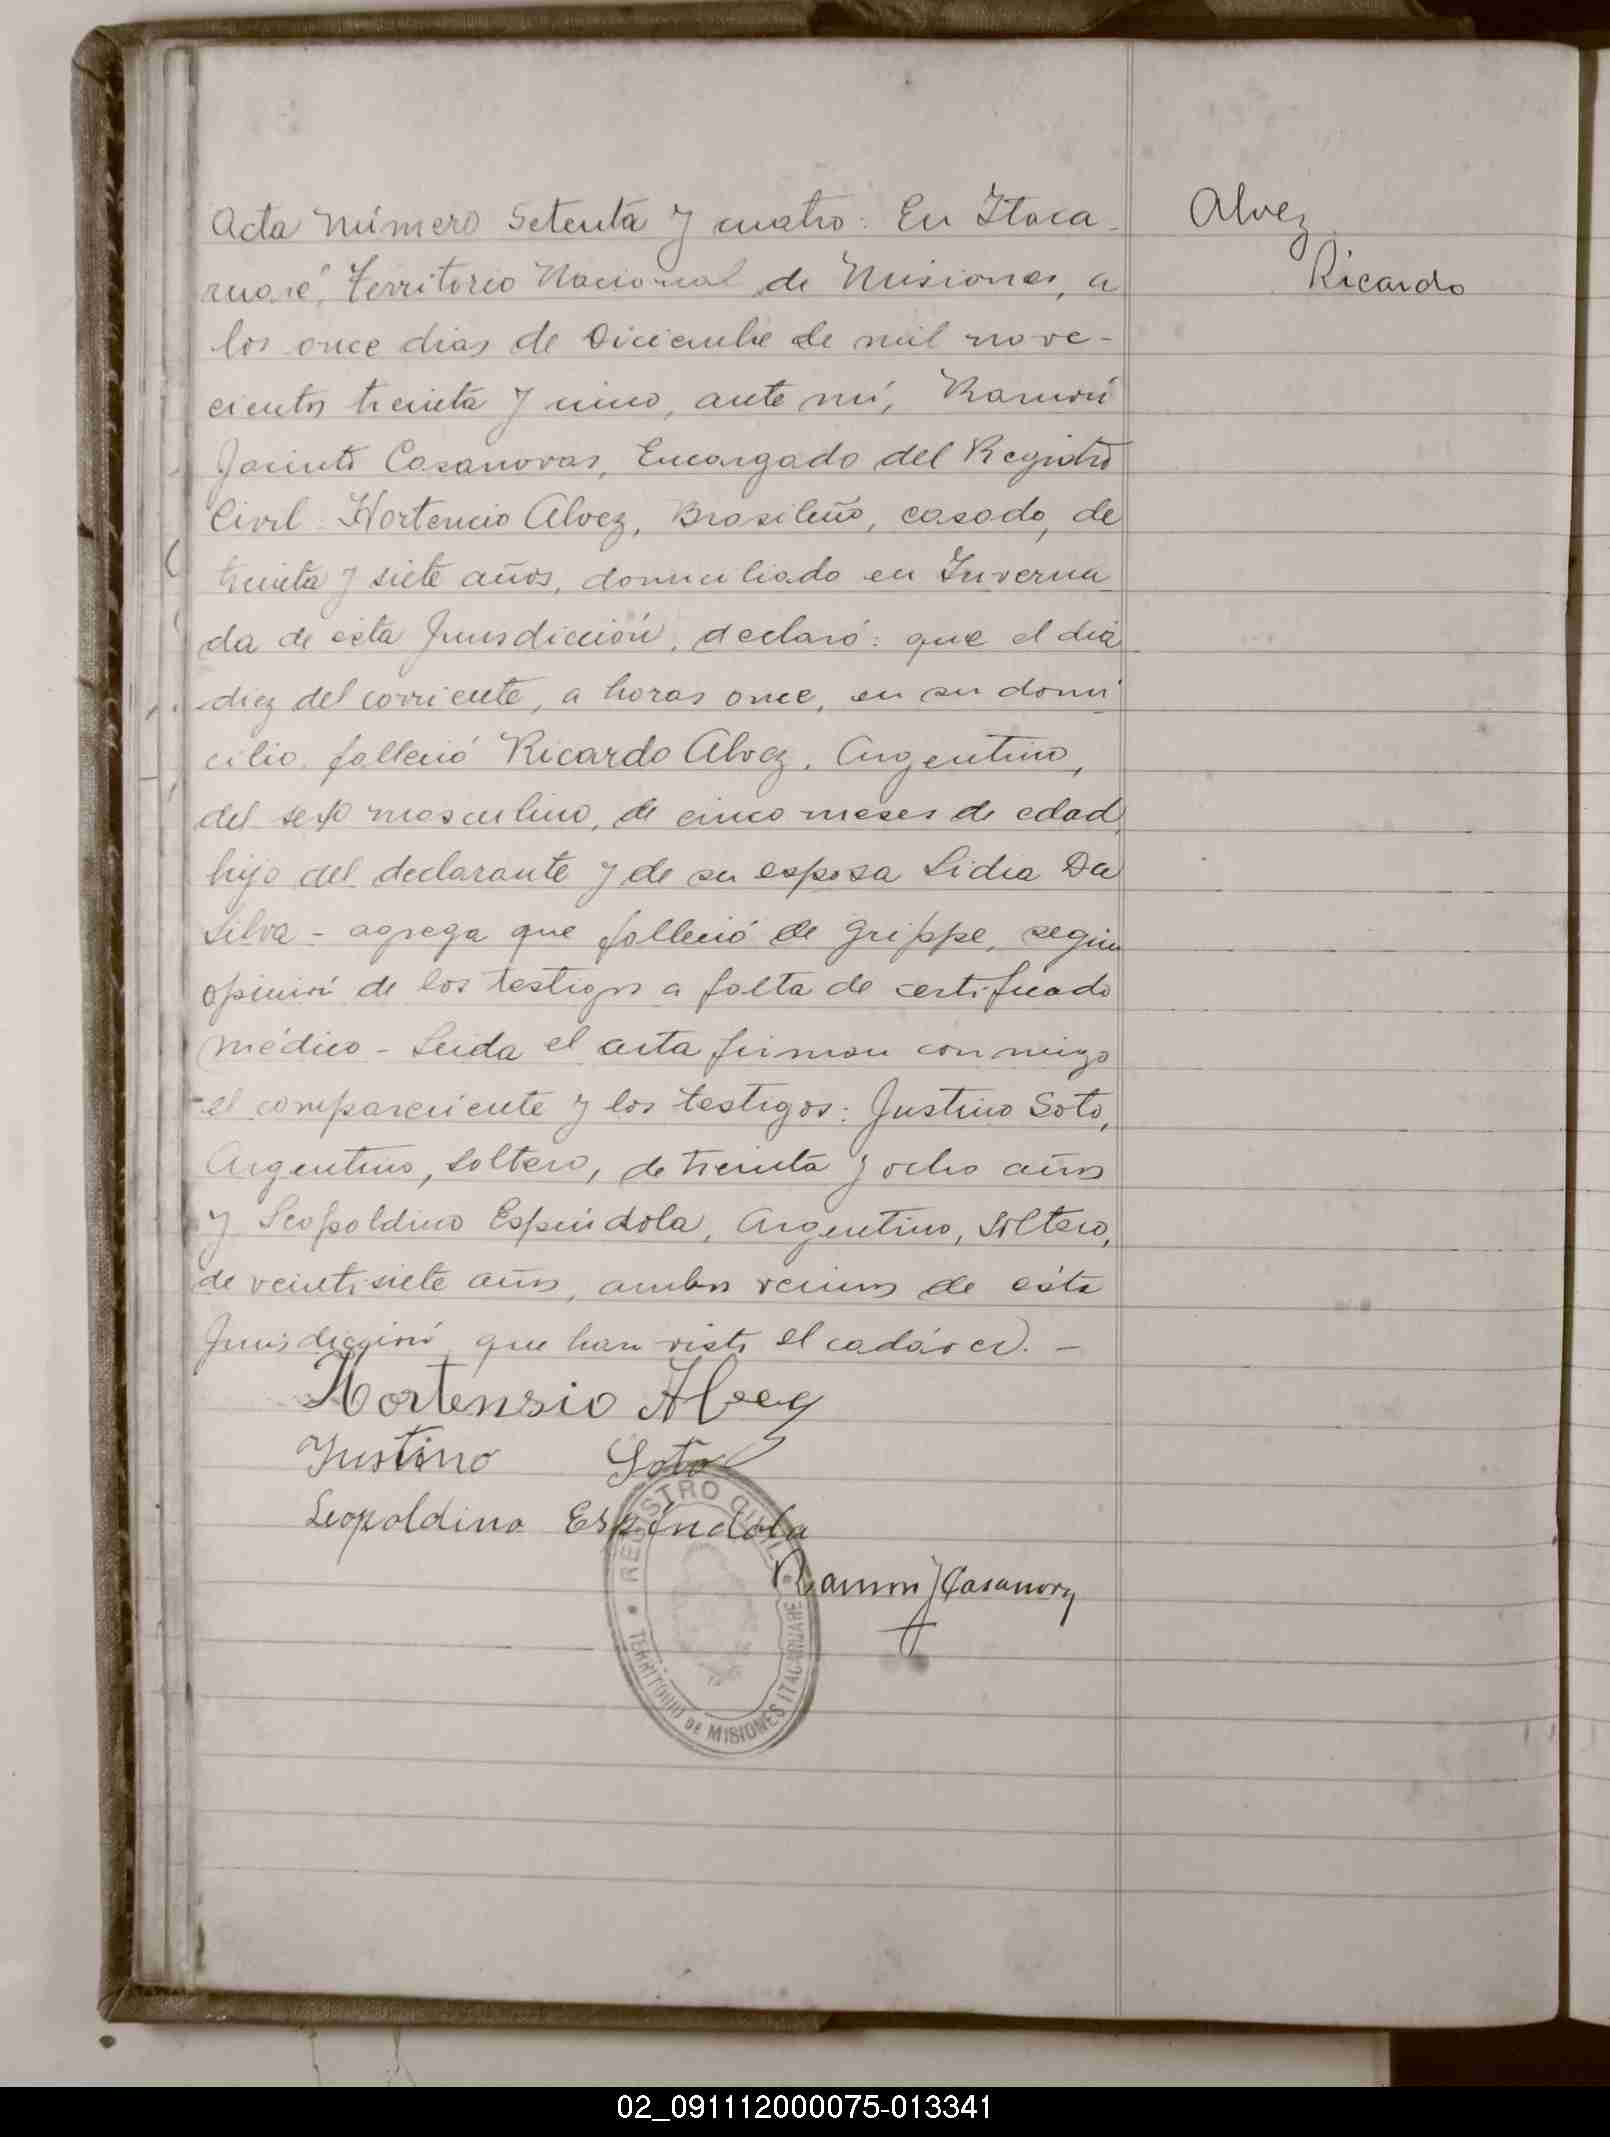 Acta Número Setenta y cuatro: En Itaca-
ruaré, Territorio Nacional de Misiones, a
los once dias de Diciembre de mil nove-
cientos treinta y cinco, ante mí, Ramón
Jacinto Casanovas, Encargado del Registro
Civil Hortencio Alvez, Brasileño, casado, de
treinta y siete años, domiciliado en Inverna-
da de esta Jurisdicción, declaró: que el dia
diez del corriente, a horas once, en su domi-
cilio, falleció Ricardo Alvez, Argentino,
del sexo masculino, de cinco meses de edad,
hijo del declarante y de su esposa Lidia Da
Silva - agrega que falleció de grippe, según
opinión de los testigos a falta de certificado
médico - Leida el acta firman conmigo
el compareciente y los testigos: Justino Soto,
Argentino, soltero, de treinta y ocho años
y Leopoldino Espíndola, Argentino, Soltero,
de veintisiete años, ambos vecinos de ésta
Jurisdicción que han visto el cadáver. -
Hortensio Alvez
Justino Soto
Leopoldino Espíndola
Ramon J Casanovas
REGISTRO CIVIL
TERRITORIO DE MISIONES ITACARUARE
Alvez
Ricardo
02_091112000075-013341